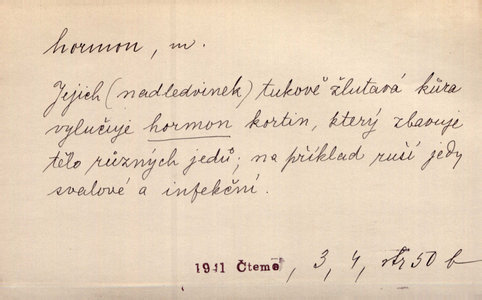 hormon, m.
Jejich (nadledvinek) tukově žlutavá kůra
vylučuje hormon kortin, který zbavuje
tělo různých jedů; na příklad ruší jedy
svalové a infekční.
1941 Čteme, 3, 4, str 50 b